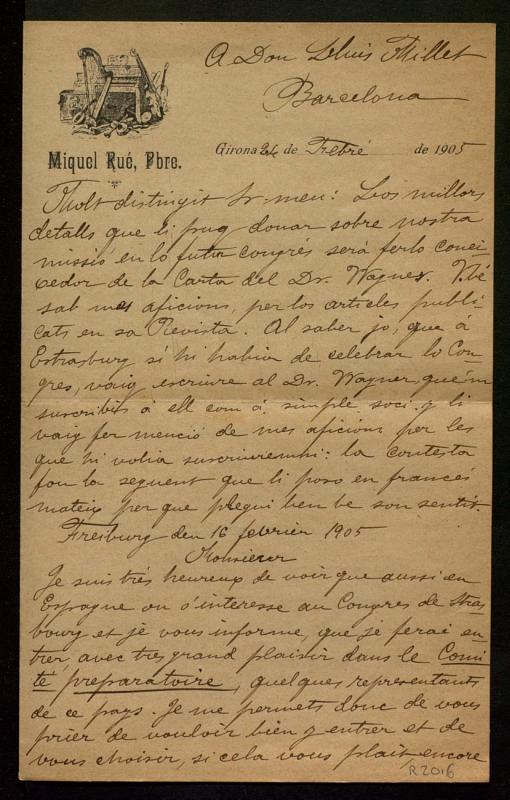 A Don Lluis Millet
Barcelona
Miquel Rué, Pbre.
Girona 24 de Febré de 1905
Molt distingit Sr. meu: Los millors
detalls que li pug donar sobre nostra
missió en lo futur congrés será ferlo conei-
xedor de la Carta del Dr. Wagner. V. bé
sab mes aficions, per los articles publi-
cats en sa Revista. Al saber jo, que á
Estrasburg si hi habia de celebrar lo Con-
gres, vaig escriure al Dr. Wagner, que'm
suscribís á ell com á simple soci y li
vaig fer menció de mes aficions per les
que hi volia suscriuremhi: la contesta
fou la seguent que li poso en francés
mateix per que plegui ben be son sentit
Freiburg den 16 febrier 1905
Monsieur
Je suis trés heureux de voir que aussi en
Espagne on s'interesse au Congres de Stras-
bourg et je vous informe, que je ferai en
trer, avec tres grand plaisir dans le Comi
té preparatoire, quelques representants
de ce pays. Je me permets donc de vous
prier de vouloir bien y entrer et de
vous choisir, si cela vous plait encore
R2016